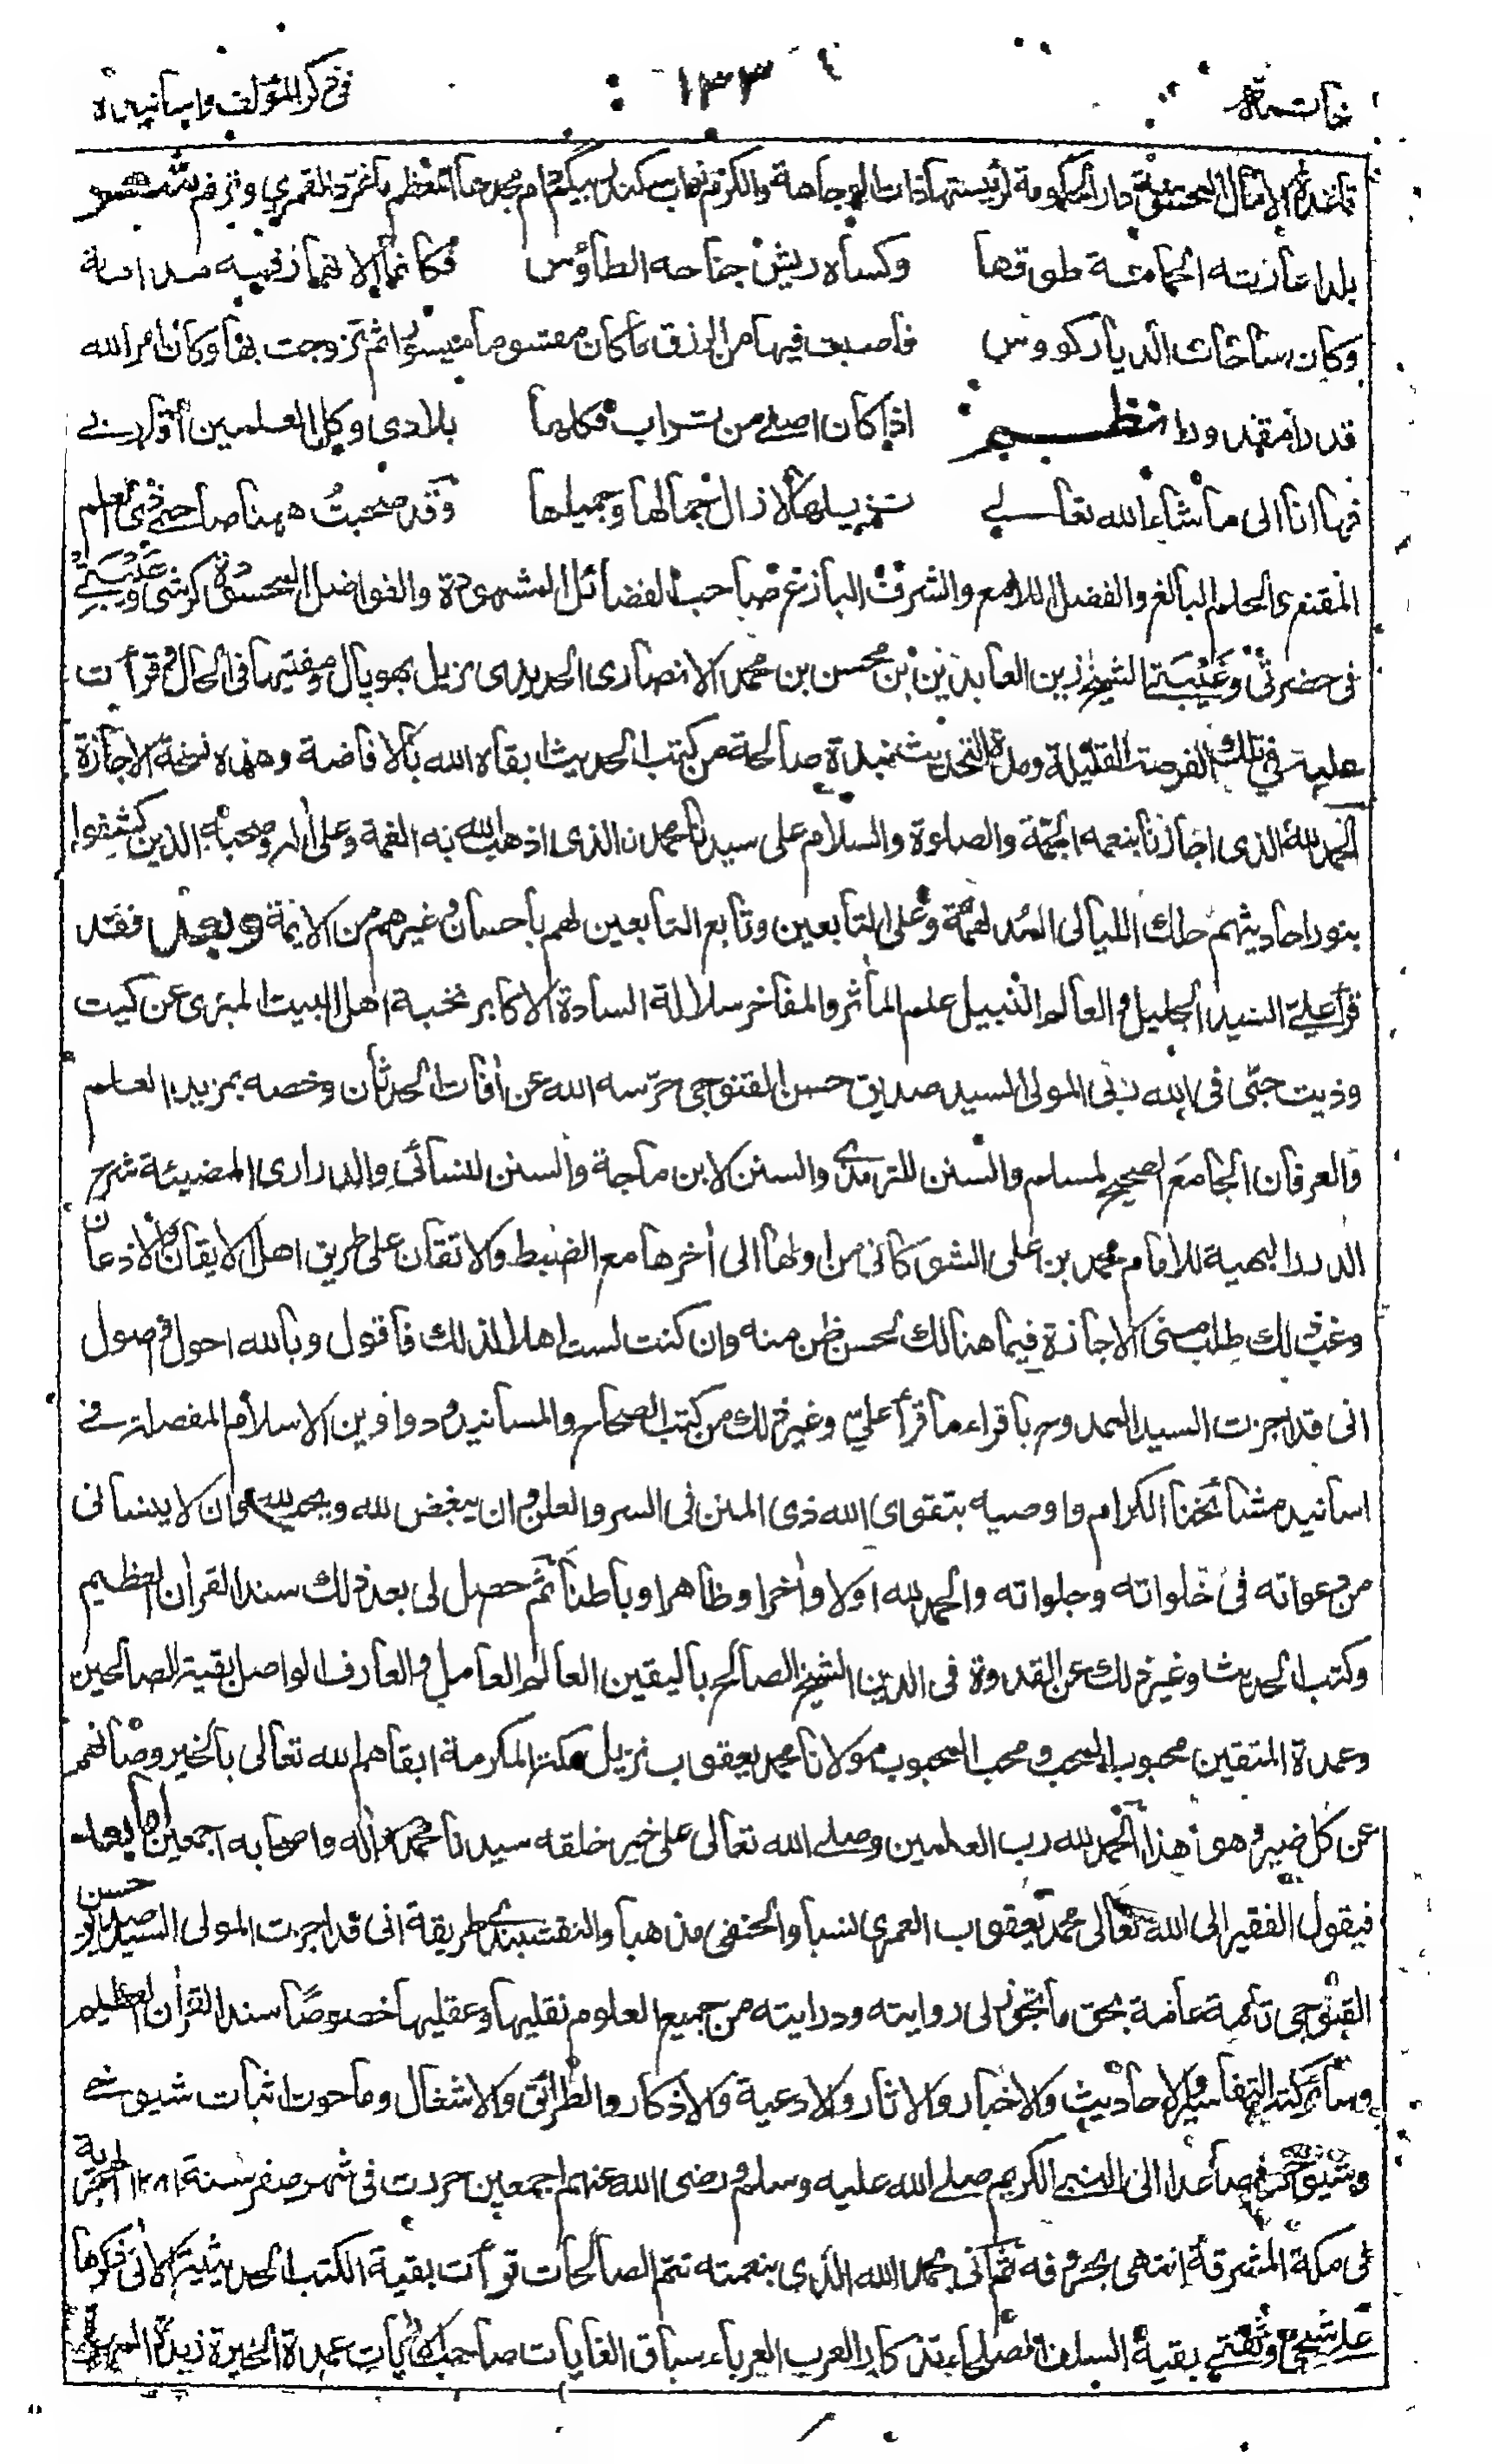 خاتمة ١٣٣ في ذكر المؤلف واسانيده
قاعدة الامال المحققة دار الحكومة لرئيستها ذات الوجاهة والكرم نواب سكندر بيگم ام مجدها المعظم بالقمري وترقم شعر
بلد اعارته الحمامة طوقها وكساه ريش جناحه الطاؤس فكانما الانهار فيه مدامة
وكان ساحات الديار كووس فاصبت فيها من الرزق ما كان مقسوما ميسورا ثم تزوجت بها وكان امر الله
قدرا مقدورا نظم اذا كان اصلي من تراب فكلها بلادي وكل العلمين اقاربي
فها انا الى ما شاء الله تعالى نزيلها لا زال جمالها وجميلها وقد صحبت ههنا صاحبي ذي العلم
المقنع والحلم البالغ والفضل اللامع والشرف البازغ صاحب الفضائل المشهودة والفواضل المحسودة كرشي وعيبتي
في حضرتي وغيبتي الشيخ زين العابدين بن محسن بن محمد الانصاري الحديدي نزيل بهوپال ومفتيها في الحال وقرأت
عليه في تلك الفرصة القليلة ومدة التحديث نبذة صالحة من كتب الحديث ابقاه الله بالافاضة وهذه نسخة الاجازة
الحمد لله الذى اجازنا بنعمه الجمة والصلوة والسلام على سيدنا محمدن الذى اذهب الله به الغمة وعلى اله وصحبه الذين كشفوا
بنور احاديثهم حلك الليالى المدلهمة وعلى التابعين وتابع التابعين لهم باحسان وغيرهم من الائمة وبعد فقد
قرأ علي السيد الجليل والعالم النبيل علم المأثر والمفاخر سلالة السادة الاكابر نخبة اهل البيت المبرى عن كيت
وذيت حبّى فى الله ربى المولى السيد صديق حسن القنوجى حرّسه الله عن أفات الحدثان وخصه بمزيد العلم
والعرفان الجامع الصحيح لمسلم والسنن للترمذي والسنن لابن ماجة والسنن للنسائي والدرارى المضيئة شرح
الدرر البهية للامام محمد بن على الشوكانى من اولها الى أخرها مع الضبط والاتقان على طريق اهل الايقان والاذعان
وغب ذلك طلب منى الاجازة فيما هنالك لحسن ظن منه وان كنت لست اهلا لذلك فاقول وبالله احول واصول
انى قد اجزت السيد الممدوح باقراء ما قرأ عليّ وغير ذلك من كتب الصحاح والمسانيد ودواوين الاسلام المفصلة في
اسانيد مشائخنا الكرام واوصيه بتقوى الله ذى المنن فى السر والعلن وان يبغض لله ويحب لله وان لا ينسانى
من دعواته فى خلواته وجلواته والحمد لله اولا وأخرا وظاهرا وباطنا ثم حصل لى بعد ذلك سند القرأن العظيم
وكتب الحديث وغير ذلك عن القدوة فى الدين الشيخ الصالح باليقين العالم العامل والعارف الواصل بقية الصالحين
وعمدة المتقين محبوب المحب ومحب المحبوب مولانا محمد يعقوب نزيل مكة المكرمة ابقاهم الله تعالى بالخير وصانهم
عن كل ضير وهو هذا الحمد لله رب العلمين وصلى الله تعالى على خير خلقه سيدنا محمد واله واصحابه اجمعين اما بعد
فيقول الفقير الى الله تعالى محمد يعقوب العمري نسبا والحنفى مذهبا والنقشبندي طريقة انى قد اجزت المولى السيد صديق حسن
القنوجى تامة عامة بحق ما تجوز لى روايته ودرايته من جميع العلوم نقليها وعقليها خصوصًا سند القرأن العظيم
وسائر كتب التفاسير والاحاديث والاخبار والاثار والادعية والاذكار والطرائق والاشغال وما حوت اثبات شيوخي
وشيوخهم صاعدا الى النبي الكريم صلى الله عليه وسلم ورضى الله عنهم اجمعين حررت فى شهر صفر سنة ١٢٨١ الهجرية
فى مكة المشرفة انتهى بحروفه ثم انى بحمد الله الذي بنعمته تتم الصالحات قرأت بقية الكتب الحديثية الاتى ذكرها
على شيخي وثقتي بقية السلف الصلحاء تذكار العرب العرباء سباق الغايات صاحب الأيات عمدة الخيرة زبدة